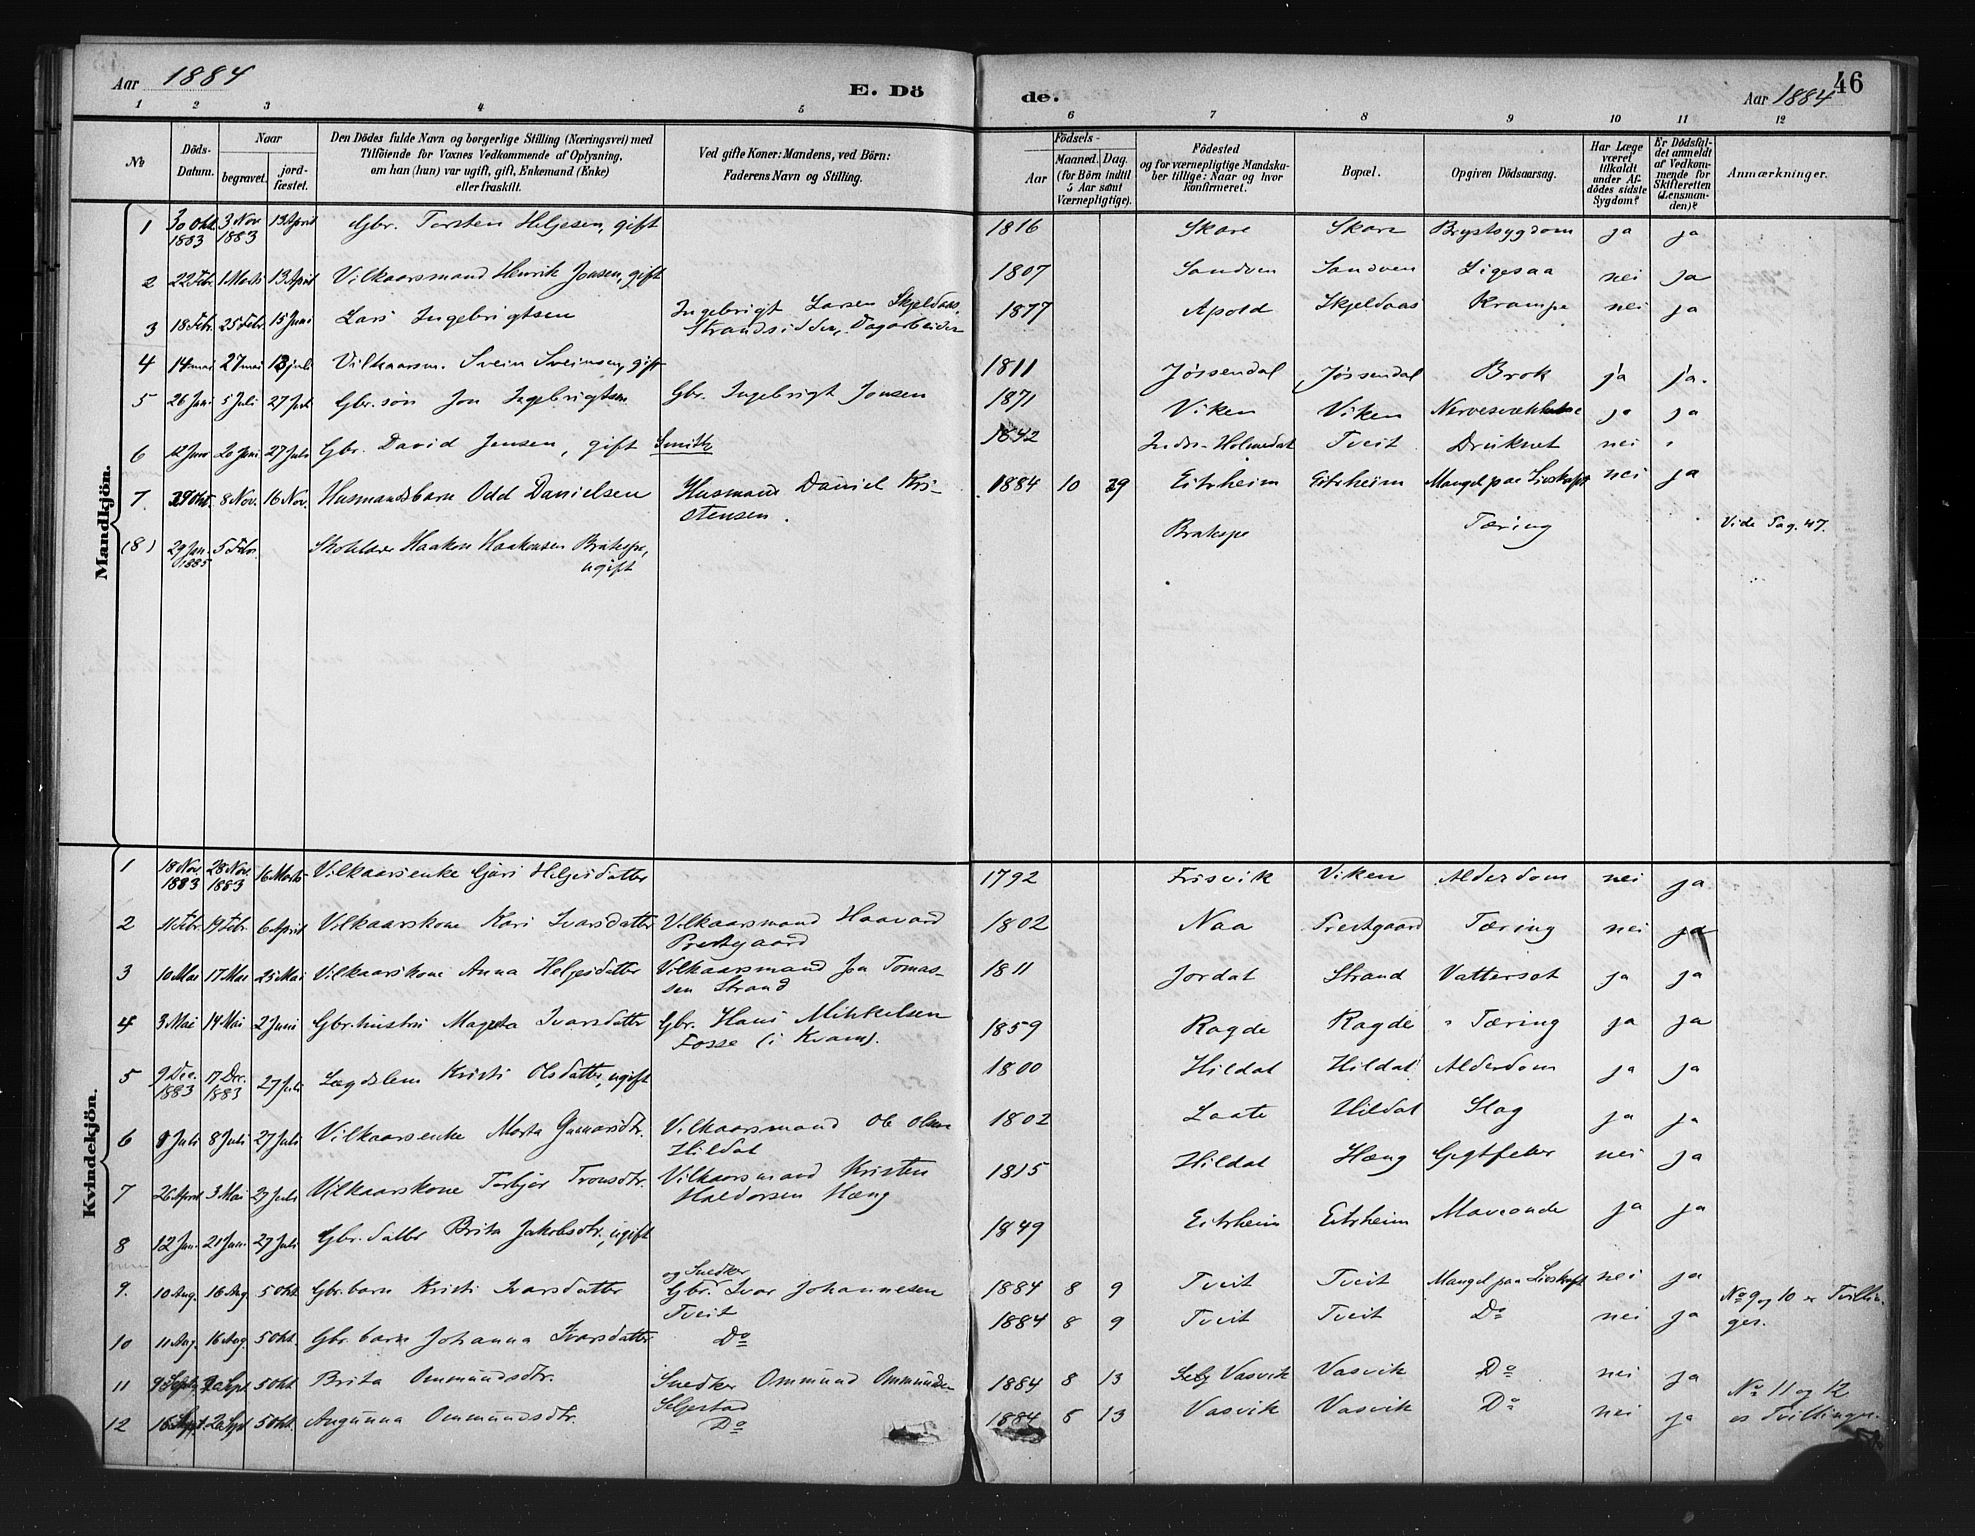 Aar 1884
E. Dö
de.
Aar 1884
46
1 2 3 4 5 6 7 8 9 10 11 12
No
Döds-Datum.
Naar
begravet.
jord-fæstet.
Den Dödes fulde Navn og borgerlige Stilling (Næringsvei) med
Tilföiende for Voxnes Vedkommende af Oplysning,
om han (hun) var ugift, gift, Enkemand (Enke)
eller fraskilt.
Ved gifte Koner: Mandens, ved Börn:
Faderens Navn og Stilling.
Födsels-
Aar
Maaned. Dag.
(for Börn indtil
5 Aar samt
Værnepligtige).
Födested
og for værnepligtige Mandska-
ber tillige: Naar og hvor
konfirmeret.
Bopæl.
Opgiven Dödsaarsag.
Har Læge
været
tilkaldt
under Af-
dödes sidste
Sygdom?
Er Dödsfal-
det anmeldt
af Vedkom-
mende for
Skifteretten
(Lensman-
den)?
Anmærkninger.
Mandkjön.
1 30 Okt. 1883 3 Nov. 1883 13 April Gbr. Torsten Helgesen, gift 1816 Skare Skare Brystsygdom ja ja
2 22 Febr. 1 Marts 13 April Vilkaarsmand Henrik Jonsen, gift 1807 Sandven Sandven Ligesaa nei ja
3 18 Febr. 25 Febr. 15 Juni Lars Ingebrigtsen Ingebrigt Larsen Skjeldaas, 1877 Apold Skjeldaas Krampe nei ja
Strandsidder, Dagarbeider
4 14 mai 27 mai 13 juli Vilkaarsm. Svein Sveinsen, gift 1811 Jøssendal Jøssendal Brok ja ja.
5 26 Juni 5 Juli 27 Juli Gbr. søn Jon Ingebrigtsen Gbr. Ingebrigt Jonsen 1871 Viken Viken ja ja
6 12 Juni 20 Juni 27 Juli Gbr. David Jensen, gift Smith 1842 Indr-Holmedal Tveit Druknet nei
7. 29 Okt. 8 Nov. 16 Nov. Husmandsbarn Odd Danielsen Husmand Daniel Kri- 1884 10 29 Eitrheim Eitrheim Mangel paa Livskraft nei ja
stensen.
(8) 29 Jan. 1885 5 Febr. Skolelærer Haakon Haakonsen Brakespe, Brakespe Tæring Vide Pag. 47.
ugift
Kvindekjön.
1 18 Nov. 1883 28 Nov. 1883 16 Marts Vilkaarsenke Guri Helgesdatter 1792 Frisvik Viken Alderdom nei ja
2 11 Febr. 19 Febr. 6 April Vilkaarskone Kari Ivarsdatter Vilkaarsmand Haavard 1802 Naa Prestgaard Tæring nei ja
Prestgaard
3 10 Mai 17 Mai 25 Mai Vilkaarskone Anna Helgesdatter Vilkaarsmand Jon Tomas- 1811 Jordal Strand Vattersot ja ja
sen Strand
4 3 Mai 14 Mai 2 Juni Gbr. hustru Mageta Ivarsdatter Gbr. Hans Mikkelsen 1859 Ragde Ragde Tæring ja ja
Fosse (i Kvam).
5 9 Dec. 1883 17 Dec. 1883 27 Juli Lægdslem Kristi Olsdatter, ugift 1800 Hildal Hildal Alderdom ja ja
6 1 Juli 8 Juli 27 Juli Vilkaarsenke Marta Gunnarsdtr. Vilkaarsmand Ole Olsen 1802 Laate Hildal Slag ja ja
Hildal
7 26 April 3 Mai 27 Juli Vilkaarskone Torbjør Tronsdtr. Vilkaarsmand Kristen 1815 Hildal Hæng Gigtfeber nei ja
Haldorsen Hæng
8 12 Jan. 21 Jan. 27 Juli Gbr. datter Brita Jakobsdtr., ugift 1849 Eitrheim Eitrheim ja ja
9. 10 Aug. 16 Aug. 5 Okt. Gbr. barn Kristi Ivarsdatter og Snedker Gbr. Ivar Johannesen 1884 8 9 Tveit Tveit Mangel paa Livskraft nei ja No 9 og 10 er Tvillin-
Tveit ger.
10 11 Aug. 16 Aug. 5 Okt. Gbr. barn Johanna Ivarsdatter Do 1884 8 9 Tveit Tveit Do nei ja
11 9 Septbr. 20 Sept. 5 Okt. Brita Ommundsdtr. Snedker Ommund Ommundsen 1884 8 13 Vasvik Vasvik Do nei ja No 11 og 12
Seljestad er Tvillinger.
12 16 Sept. 20 Sept. 5 Okt. Angunna Ommundsdtr. Do 1884 8 13 Vasvik Vasvik Do nei ja